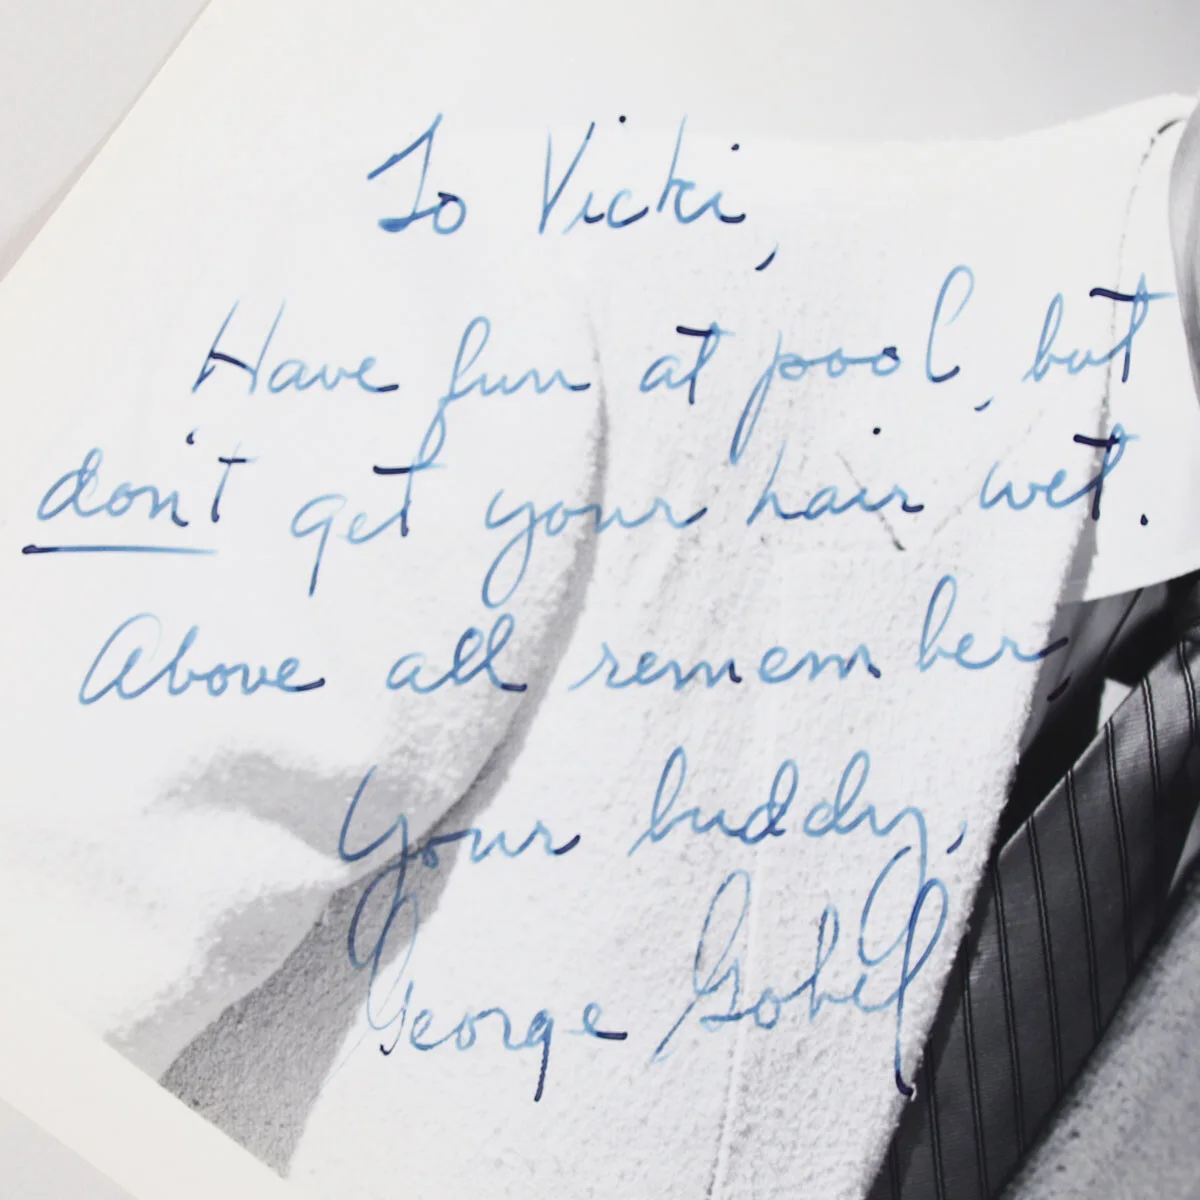 To Vicki,
Have fun at pool, but
don't get your hair wet.
Above all remember,
Your buddy,
George Gobel